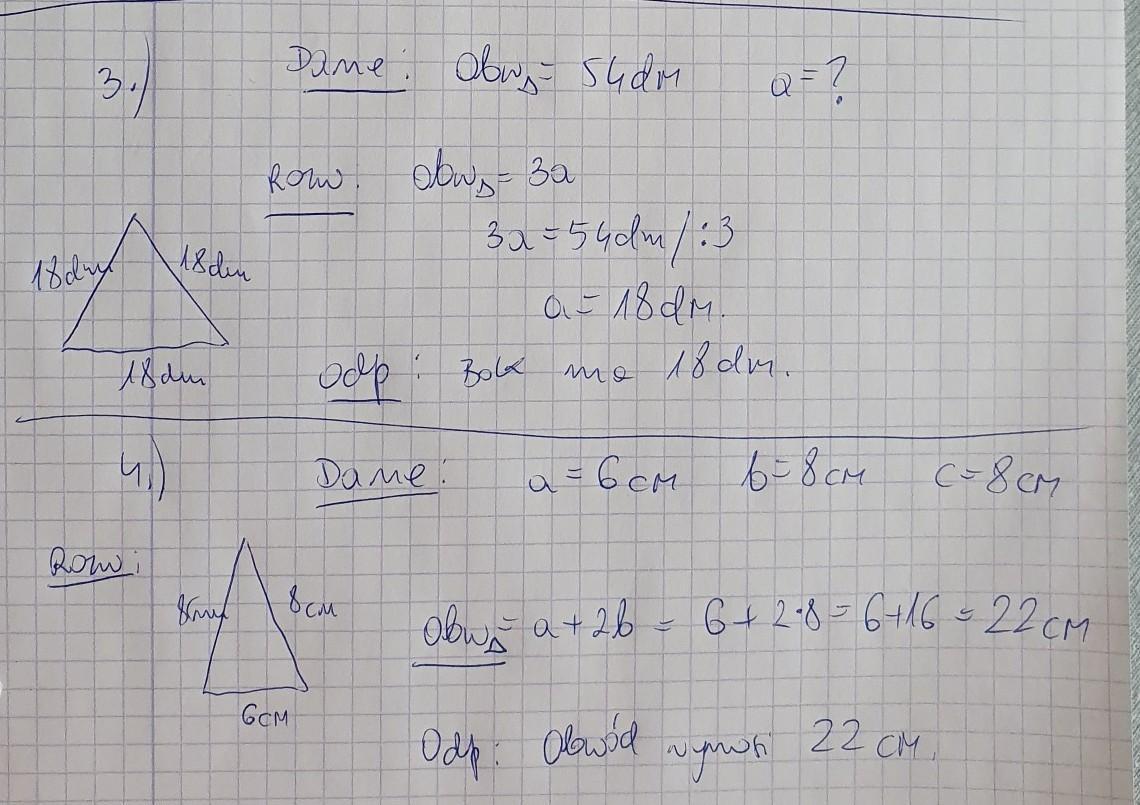 3.) Dane: Obw△ = 54dm a = ?
Row: Obw△ = 3a
3a = 54dm /:3
18dm 18dm
a = 18dm.
18dm
Odp: Bok ma 18dm.
4.) Dane: a = 6cm b = 8cm c = 8cm
Row:
8cm 8cm
Obw△ = a + 2b = 6 + 2·8 = 6+16 = 22cm
6cm
Odp: Obwód wynosi 22 cm.